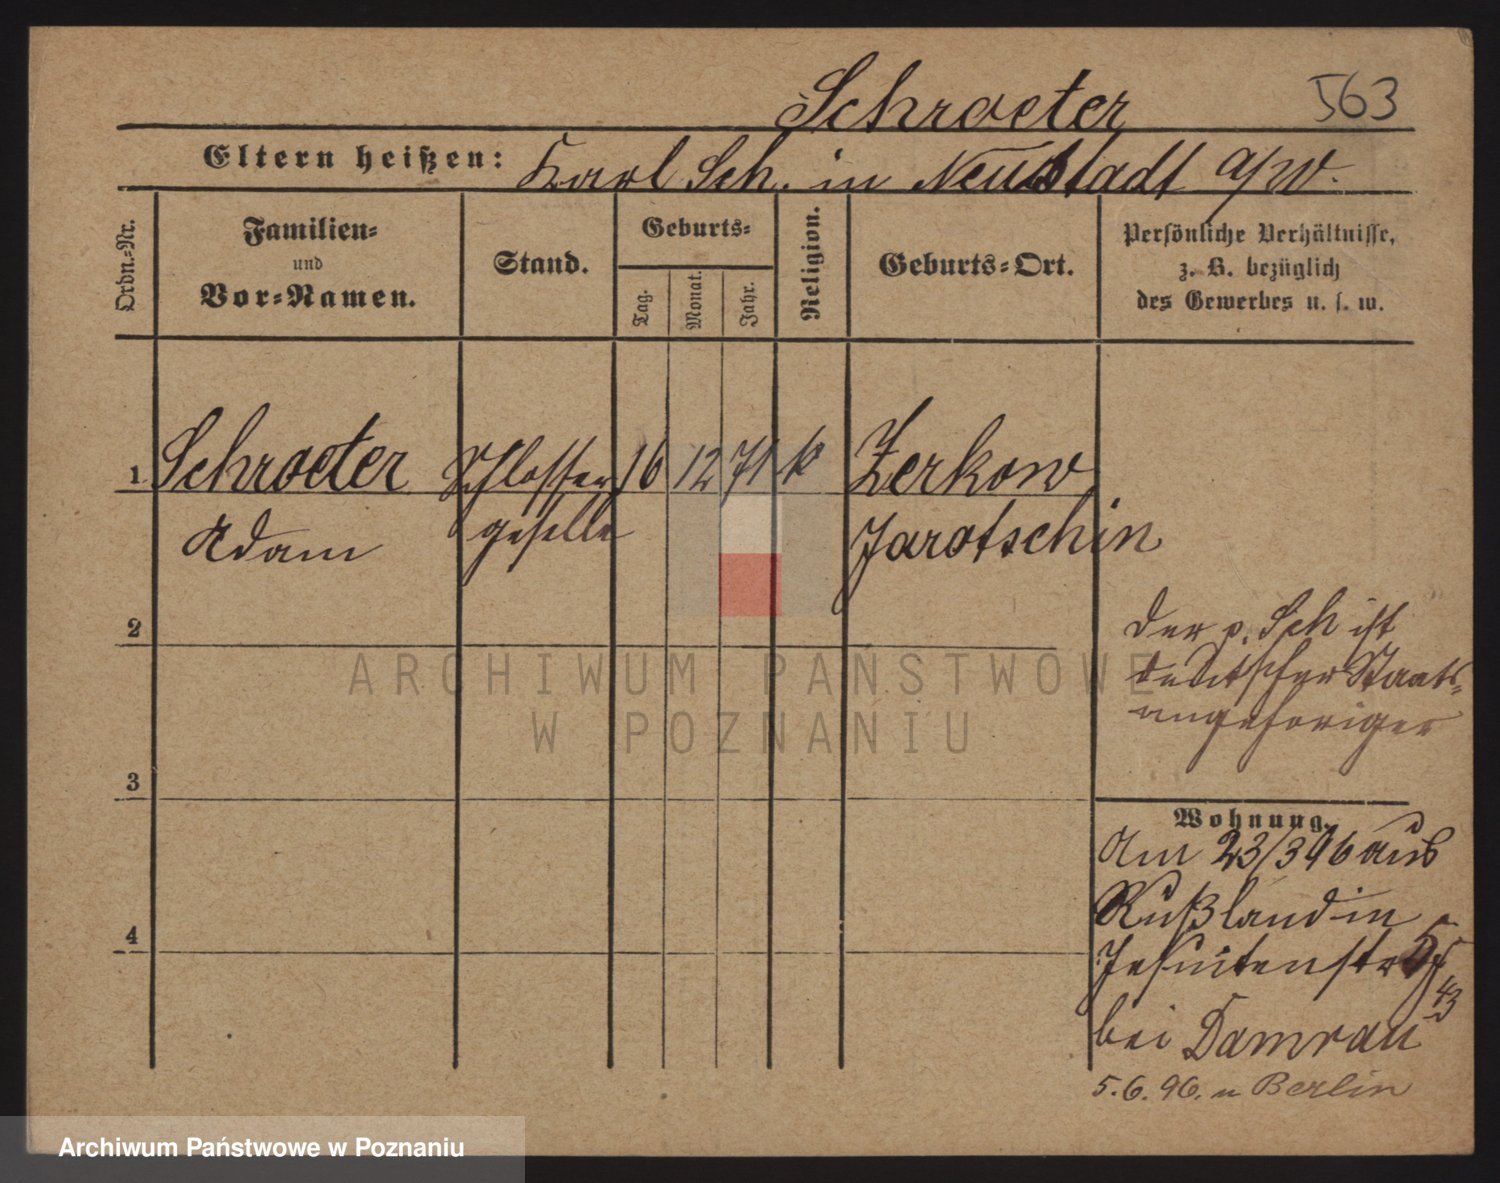 Schroeter 563
Eltern heißen: Karl Sch. in Neustadt a/W.
Ordn.-Nr.
Familien-
und
Vor-Namen.
Stand.
Geburts-
Tag.
Monat.
Jahr.
Religion.
Geburts-Ort.
Persönliche Verhältnisse,
z. B. bezüglich
des Gewerbes u. s. w.
1 Schroeter Schlosser 16 12 71 k Zerkow
Adam geselle Jarotschin
2
3
4
Der p. Sch ist
deutscher Staats-
angehöriger
Wohnung.
Am 23/3 96 aus
Rußland in
Jesuitenstr 5
bei Damrau
5.6.96. n Berlin
ARCHIWUM PAŃSTWOWE
W POZNANIU
Archiwum Państwowe w Poznaniu